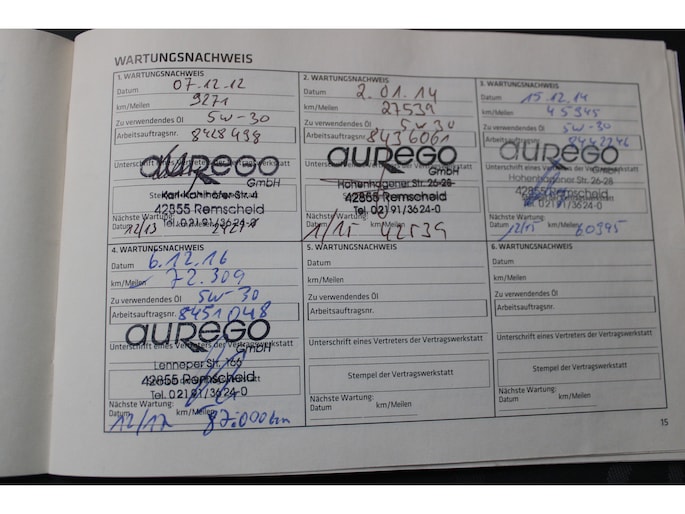 WARTUNGSNACHWEIS
1. WARTUNGSNACHWEIS
Datum 07.12.12
km/Meilen 9271
Zu verwendendes Öl 5W-30
Arbeitsauftragsnr. 8428498
aurego
GmbH
Unterschrift eines Vertreters der Vertragswerkstatt
42855 Remscheid
Tel. 02191/3624-0
Nächste Wartung:
12/13
2. WARTUNGSNACHWEIS
Datum 2.01.14
km/Meilen 27539
Zu verwendendes Öl 5W30
Arbeitsauftragsnr. 8436061
aurego
GmbH
Unterschrift eines Vertreters der Vertragswerkstatt
Hohenhagener Str. 26-28
42855 Remscheid
Tel. 02191/3624-0
Nächste Wartung:
1/15 42539
3. WARTUNGSNACHWEIS
Datum 15.12.14
km/Meilen 45945
Zu verwendendes Öl 5W-30
Arbeitsauftragsnr. 8442246
aurego
GmbH
Unterschrift eines Vertreters der Vertragswerkstatt
Hohenhagener Str. 26-28
42855 Remscheid
Tel. 02191/3624-0
Nächste Wartung:
12/15 60945
4. WARTUNGSNACHWEIS
Datum 6.12.16
km/Meilen 72.309
Zu verwendendes Öl 5W-30
Arbeitsauftragsnr. 8451048
aurego
GmbH
Unterschrift eines Vertreters der Vertragswerkstatt
Lenneper Str. 166
42855 Remscheid
Tel. 02191/3624-0
Nächste Wartung:
Datum km/Meilen
12/17 87.000km
5. WARTUNGSNACHWEIS
Datum
km/Meilen
Zu verwendendes Öl
Arbeitsauftragsnr.
Unterschrift eines Vertreters der Vertragswerkstatt
Stempel der Vertragswerkstatt
Nächste Wartung:
Datum km/Meilen
6. WARTUNGSNACHWEIS
Datum
km/Meilen
Zu verwendendes Öl
Arbeitsauftragsnr.
Unterschrift eines Vertreters der Vertragswerkstatt
Stempel der Vertragswerkstatt
Nächste Wartung:
Datum km/Meilen
15